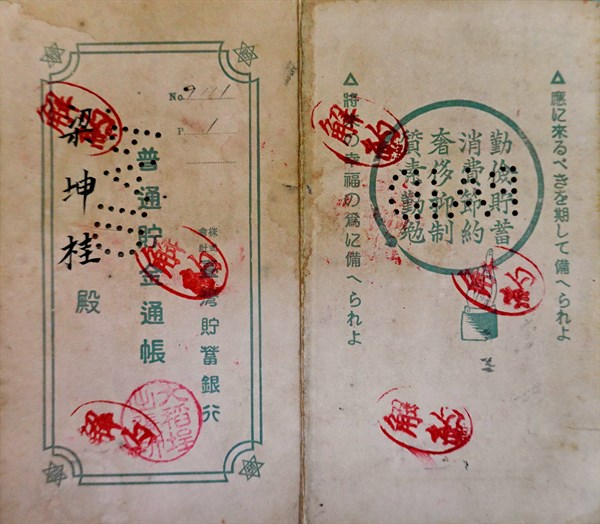 ▲應に來るべきを期して備へられよ
勤儉貯蓄
消費節約
奢侈抑制
質素勤勉
▲將來の幸福の爲に備へられよ
解約
解約
解約
No.
P. 1
株式會社臺灣貯蓄銀行
普通貯金通帳
梁坤桂殿
解約
解約
解約
大稻埕